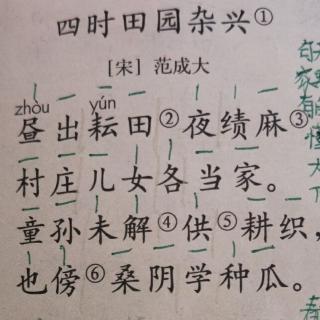 四时田园杂兴①
[宋] 范成大
zhòu yún
昼出耘田②夜绩麻③
村庄儿女各当家。
童孙未解④供⑤耕织，
也傍⑥桑阴学种瓜。